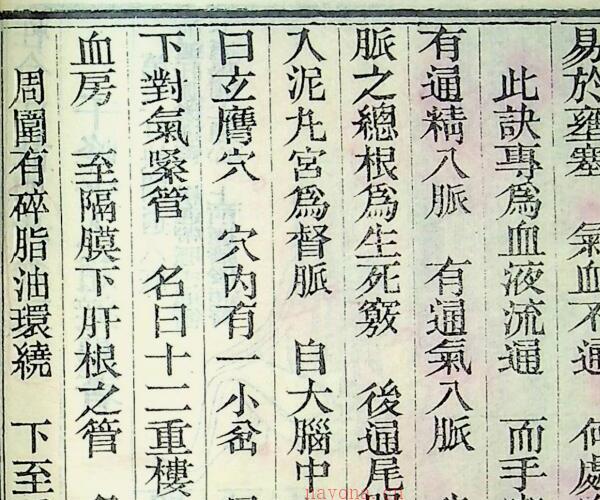 易於壅塞　氣血不通　何處
此訣專為血液流通　而手
有通精八脈　有通氣八脈
脈之總根為生死竅　後通尾
入泥丸宮為督脈　自大腦中
曰玄膺穴　穴內有一小岔
下對氣嗓管　名曰十二重樓
血房　至隔膜下肝根之管
周圍有碎脂油環繞　下至